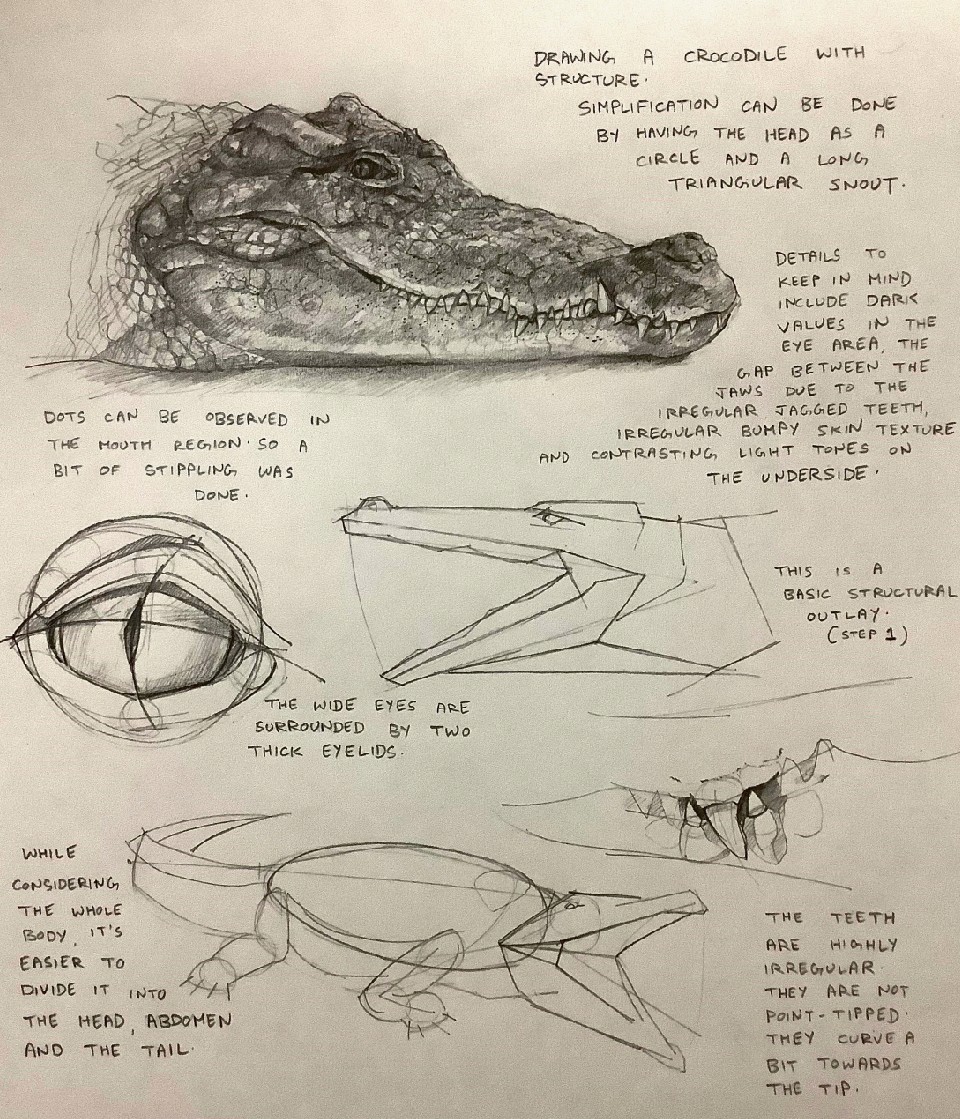 DRAWING A CROCODILE WITH
STRUCTURE.
SIMPLIFICATION CAN BE DONE
BY HAVING THE HEAD AS A
CIRCLE AND A LONG
TRIANGULAR SNOUT.
DETAILS TO
KEEP IN MIND
INCLUDE DARK
VALUES IN THE
EYE AREA, THE
GAP BETWEEN THE
JAWS DUE TO THE
IRREGULAR JAGGED TEETH,
IRREGULAR BUMPY SKIN TEXTURE
AND CONTRASTING LIGHT TONES ON
THE UNDERSIDE.
DOTS CAN BE OBSERVED IN
THE MOUTH REGION. SO A
BIT OF STIPPLING WAS
DONE.
THIS IS A
BASIC STRUCTURAL
OUTLAY.
(STEP 1)
THE WIDE EYES ARE
SURROUNDED BY TWO
THICK EYELIDS.
WHILE
CONSIDERING
THE WHOLE
BODY, IT'S
EASIER TO
DIVIDE IT INTO
THE HEAD, ABDOMEN
AND THE TAIL.
THE TEETH
ARE HIGHLY
IRREGULAR.
THEY ARE NOT
POINT-TIPPED.
THEY CURVE A
BIT TOWARDS
THE TIP.